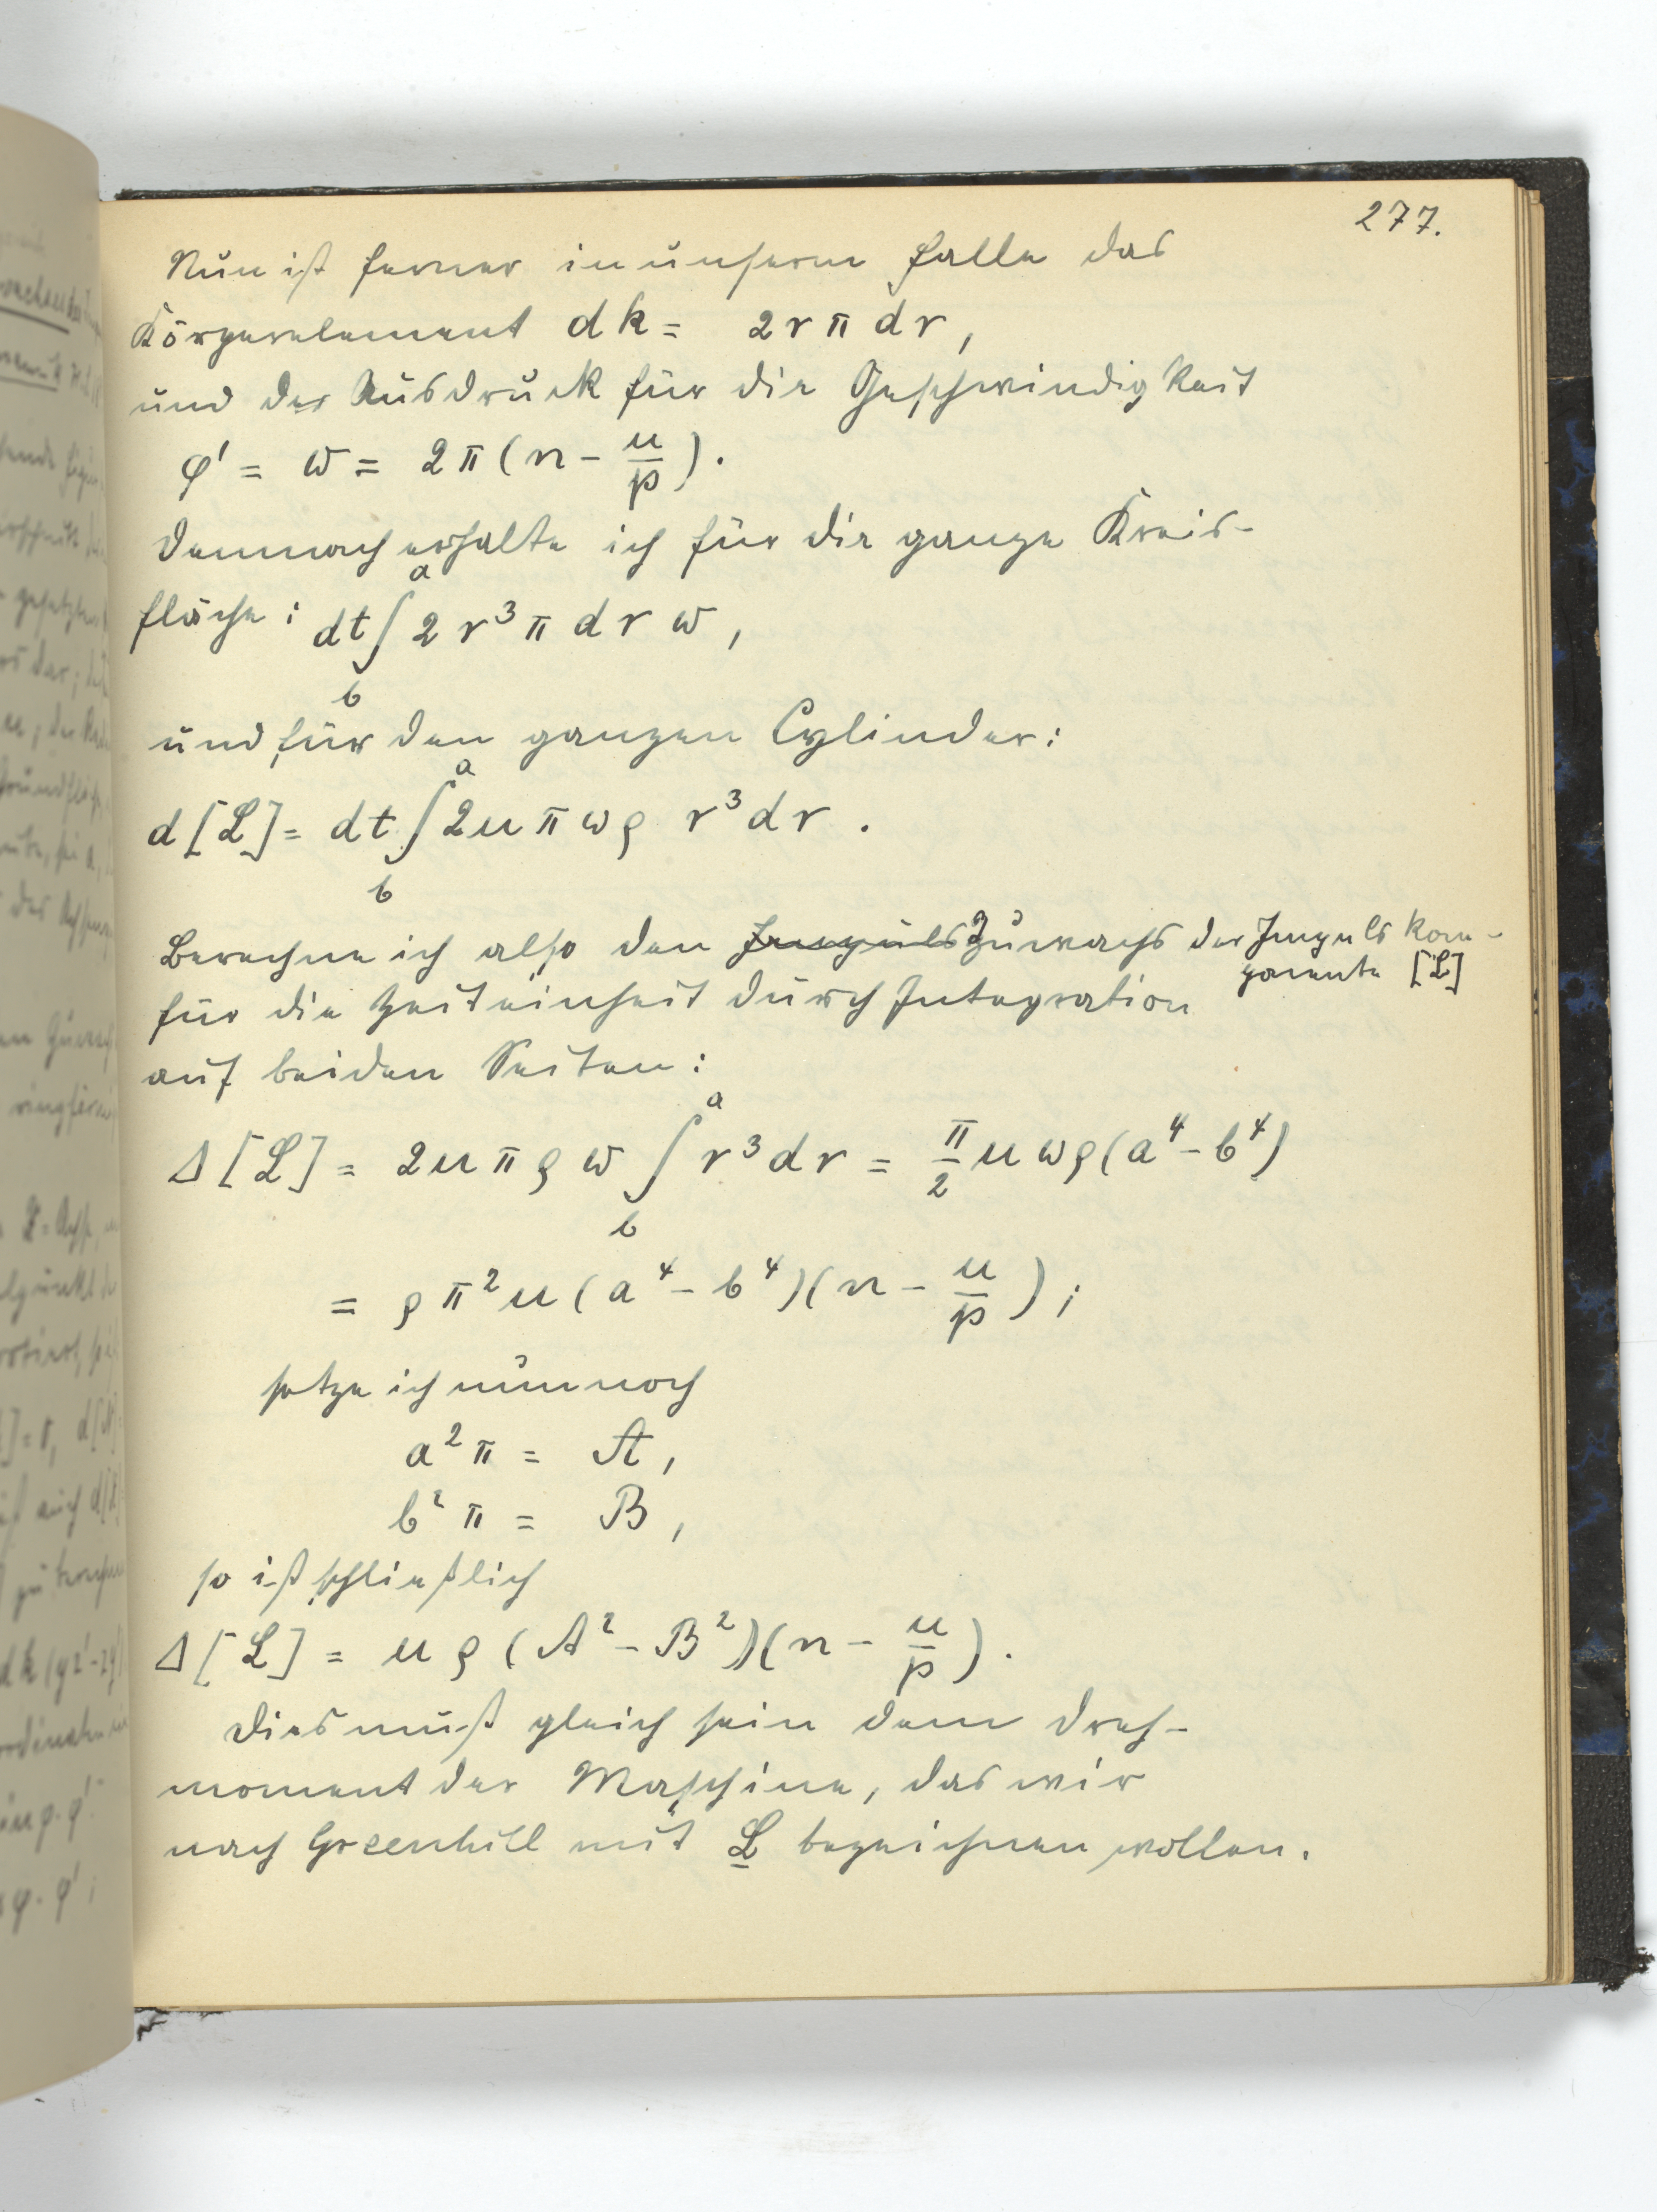 277.
Nun ist ferner in unserm Falle das
Körperelement dk = 2rπ dr,
und der Ausdruck für die Geschwindigkeit
φ' = ω = 2π(n - u/p).
Demnach erhalte ich für die ganze Kreis-
fläche: dt ∫_b^a 2r³π dr ω,
und für den ganzen Cylinder:
d[L] = dt ∫_b^a 2uπωρ r³dr.
Berechne ich also den Impuls Zuwachs der Impulskom-
ponente [L]
für die Zeiteinheit durch Integration
auf beiden Seiten:
Δ[L] = 2uπρω ∫_b^a r³dr = π/2 uωρ(a⁴-b⁴)
= ρπ²u(a⁴-b⁴)(n - u/p);
setze ich nun noch
a²π = A,
b²π = B,
so ist schließlich
Δ[L] = uρ(A²-B²)(n - u/p).
Dies muß gleich sein dem Dreh-
moment der Maschine, das wir
nach Greenhill mit L bezeichnen wollen.